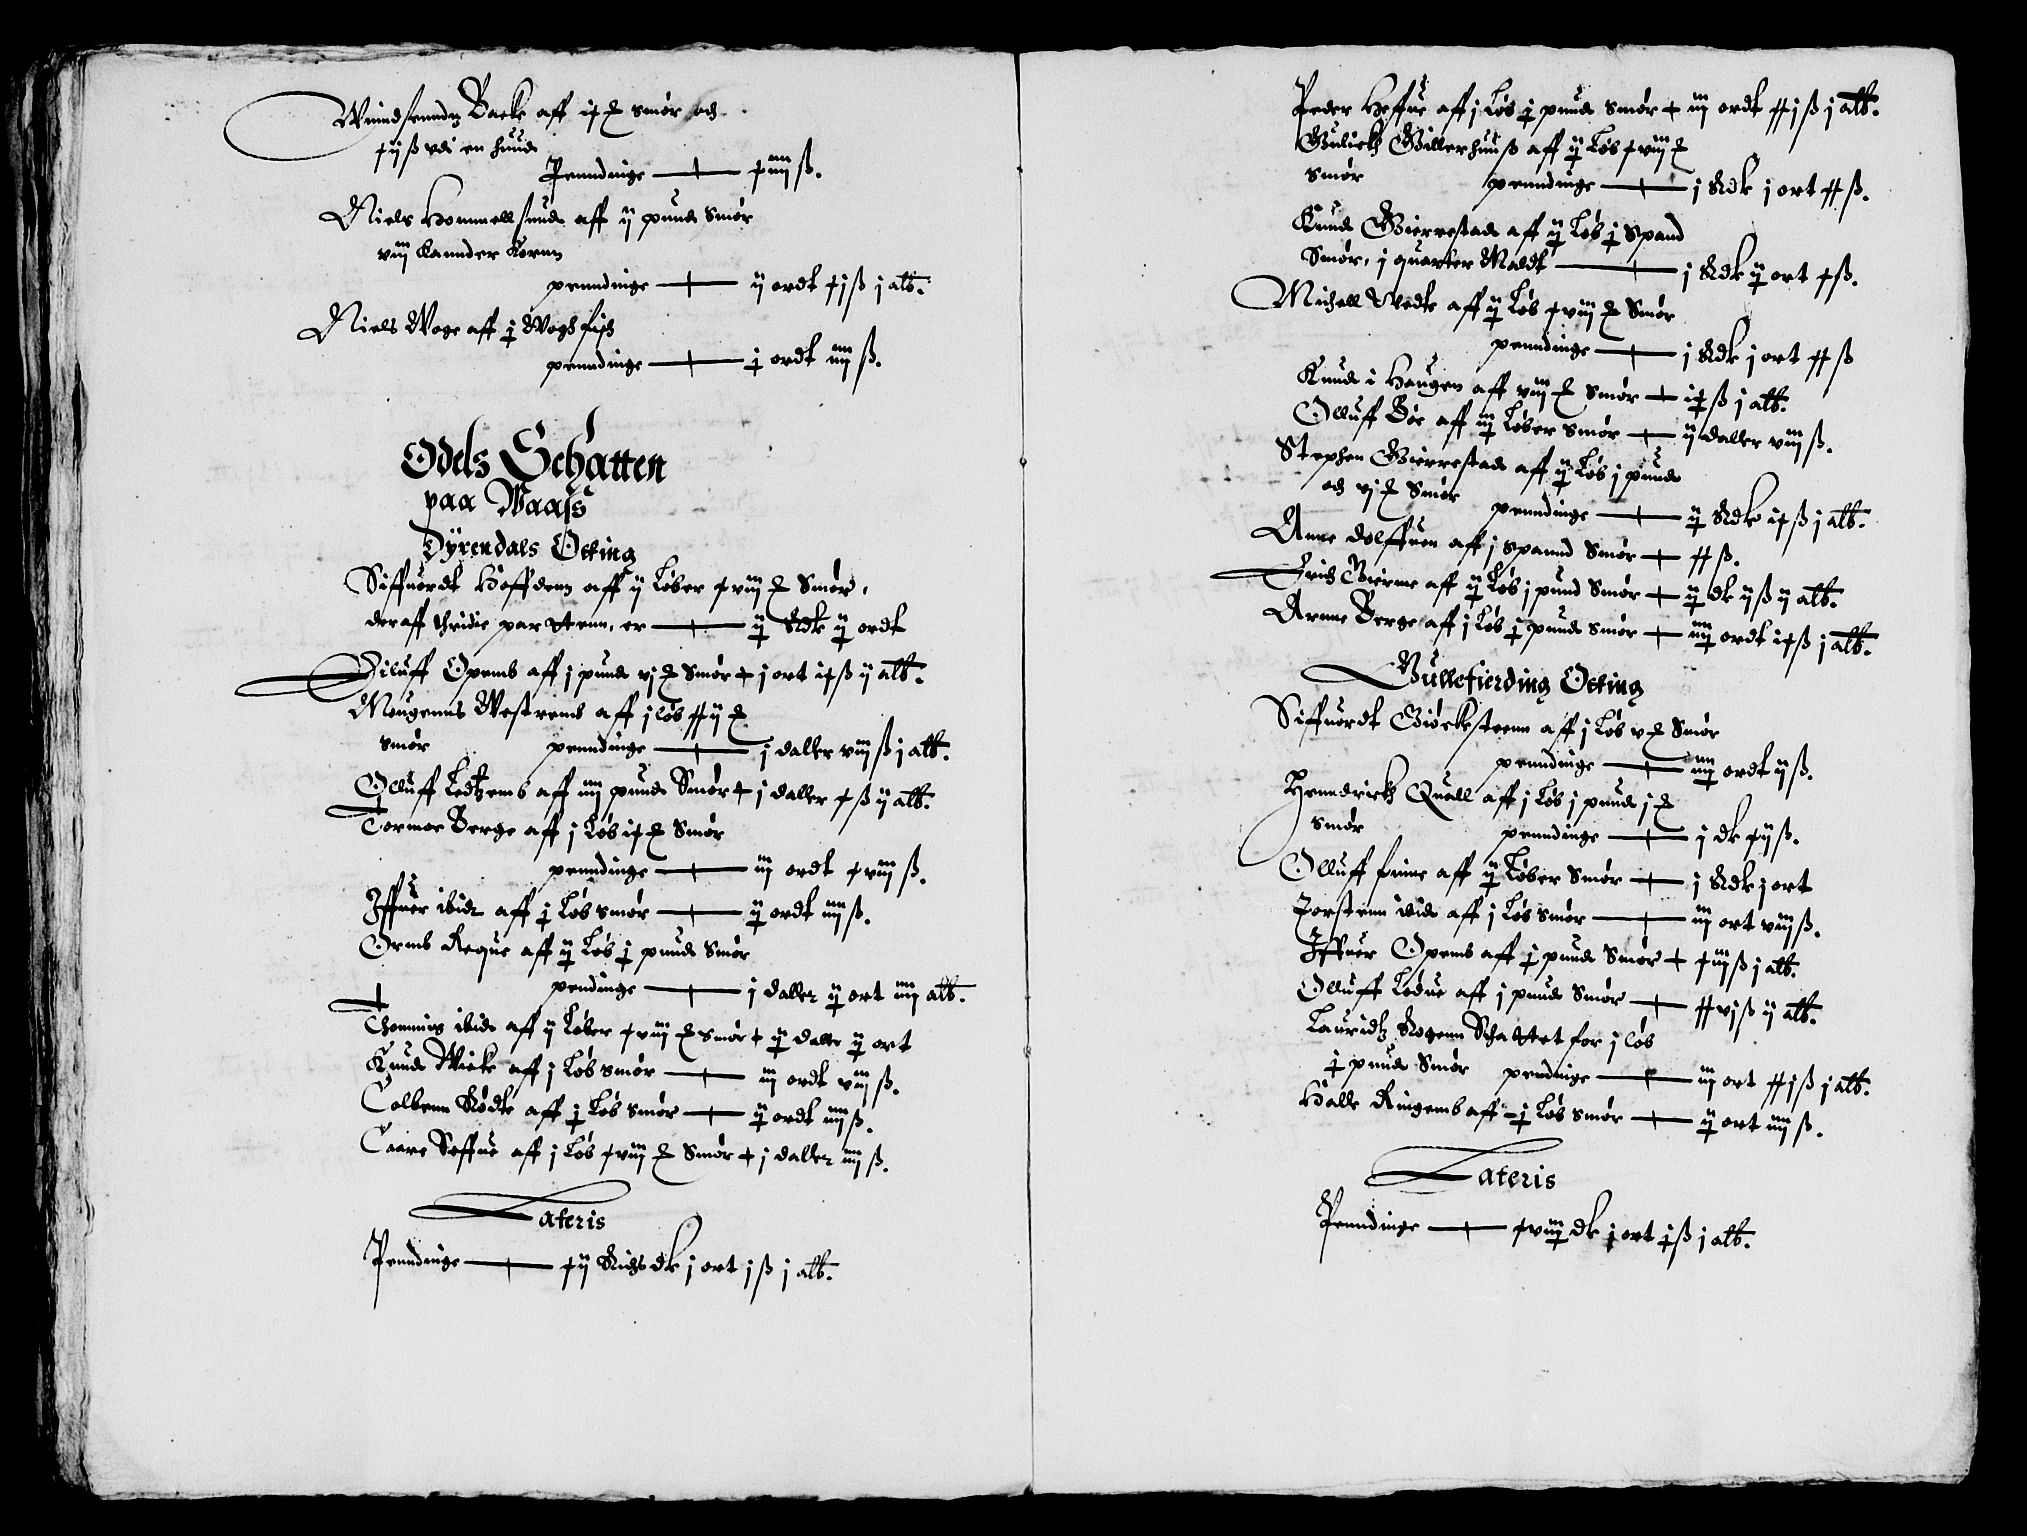 Aamundsennden Backe aff ix ℔ smør och
xij ß vdi en huud
Penndinge — xiiij ß.
Niels Hommellsund aff ij pund Smør
viij Kannder Kornn
penndinge — ij ordt xjß j alb.
Niels Woge aff j Wogh fisch
penndinge — j ordt iiij ß.
Odels Schatten
paa Waass
Dyrendals Otting
Siffuordt Hoffdenn aff ij Løber xviij ℔ Smør,
deraff thridie partenn, er — ij Rdlr ij ordt
Eiluff Opemb aff j pund vj ℔ Smør + j ort ixß ij alb.
Mougenns Westremb aff j løb xxij ℔
smør penndinge — j daller viijß j alb.
Olluff Ledtzemb aff iiij pund Smør + j daller xß ij alb.
Tormoe Berge aff j Løb ix ℔ Smør
penndinge — iij ordt xviij ß.
Iffuer ibid: aff j Løb smør — ij ordt iiij ß.
Ormb Reque aff ij Løb j pund Smør
pendinge — j daller ij ort iiij alb.
Thomis ibid: aff ij Løber xviij ℔ smør + ij daller ij ort
Knud Wicke aff j Løb smør — iij ordt viij ß.
Colbenn Rødte aff j Løb smør — ij ordt iiij ß.
Taare Seffue aff j Løb xviij ℔ Smør + j daller iiij ß.
Lateris
Penndinge — xij Richsdlr j ort j ß j alb.
Peder Heffue aff j Løb j pund Smør + iij ordt xxjß j alb.
Gulick Gillerhuuß aff ij Løb xviij ℔
smør penndinge — j Rdlr j ort xx ß.
Knud Gierrestad aff ij Løb j Spand
Smør, j quarter Maldt — j Rdlr ij ort xß.
Michell Tvedte aff ij Løb xviij ℔ Smør
penndinge — j Rdlr j ort xx ß
Knud i Haugen aff viij ℔ Smør + ix ß j alb.
Olluff Bøe aff iij Løber smør — ij daller viij ß.
Stephen Gierrestad aff ij Løb j pund
och vj ℔ Smør penndinge — ij Rdlr ixß j alb.
Anne Dolffuen aff j spannd Smør + xx ß.
Erich Bierme aff ij Løb j pund Smør + ij dlr ijß ij alb.
Arnne Berge aff j Løb j pund smør + iiij ordt ixß j alb.
Bullefierding Otting
Siffuordt Giøckstenn aff j Løb v ℔ Smør
penndinge — iiij ordt ij ß.
Henndrick Quall aff j Løb j pund j ℔
smør penndinge — j dlr xij ß.
Olluff finne aff ij Løber Smør — j Rdlr j ort
Torstenn ibid: aff j Løb smør — iij ort viijß.
Iffuer Opemb aff j pund Smør + xiijß j alb.
Olluff Lødue aff j pund Smør — xxvjß ij alb.
Lauridtz Rogenn Schattet for j løb
j pund Smør pendinge — iij ort xxjß j alb.
Halle Ringemb aff j Løb smør — ij ort iiij ß.
Lateris
Penndinge — xviij dlr j ort jß j alb.